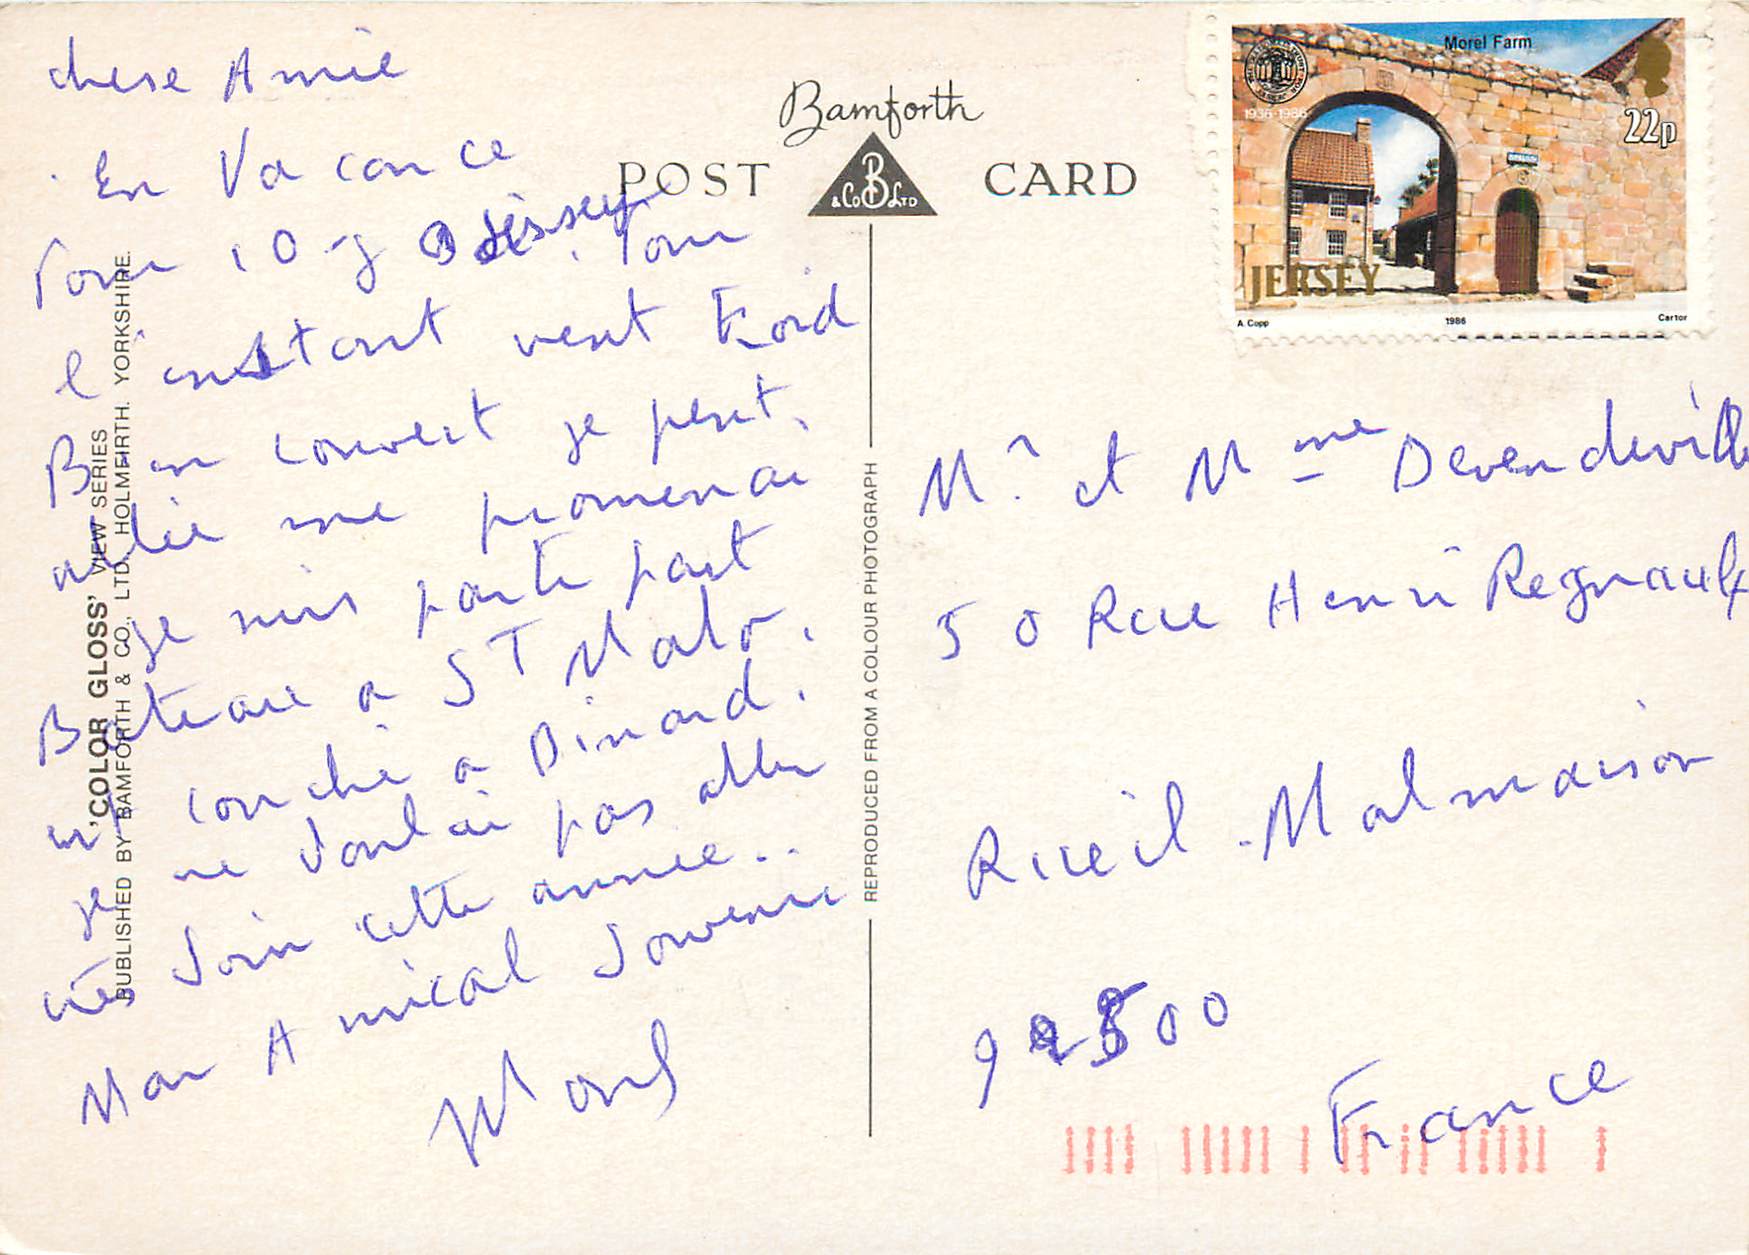 chere Amie
En Vacance
Pour 10 j a Jersey. Pour
l'instant vent Froid
Bien couvert je peut
allie me promenai
je suis partie part
Bateau a ST Malo.
couché a Dinard.
je ne Voulai pas aller
très Loin cette annee..
Mon Amical Souvenir
Bamforth
POST CARD
B
& Co LTD
'COLOR GLOSS' VIEW SERIES
PUBLISHED BY BAMFORTH & CO. LTD. HOLMFIRTH. YORKSHIRE.
REPRODUCED FROM A COLOUR PHOTOGRAPH
Morel Farm
1936-1986
22p
JERSEY
A. Copp 1986 Cartor
Mr. et Mme Devendeville
50 Rue Henri Regnault
Rueil-Malmaison
92500
France